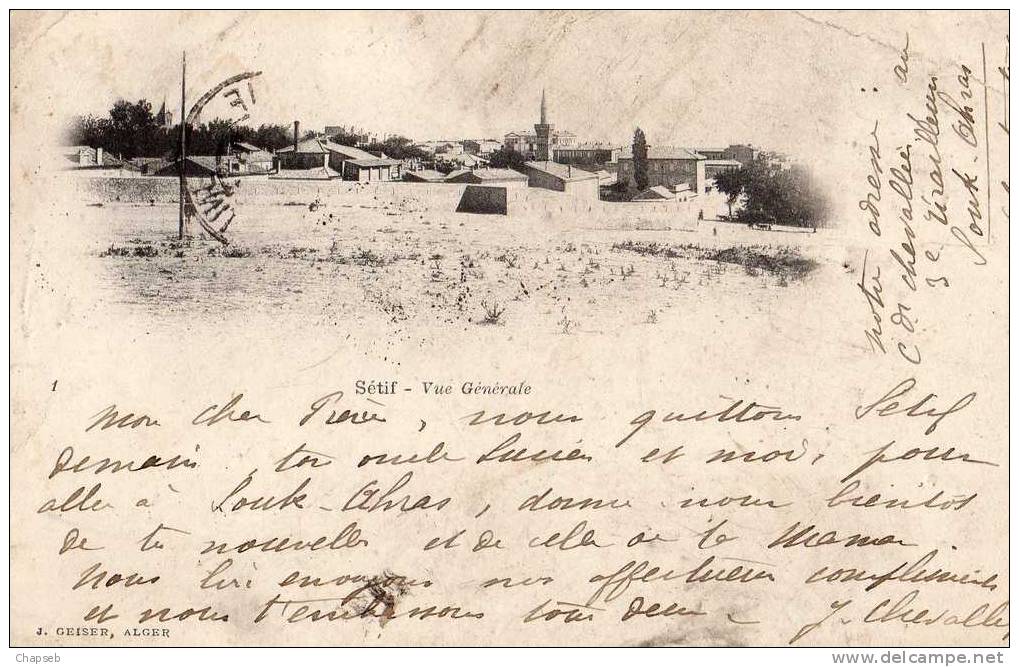 notre adresse :
C de chevallier au
3e Tirailleurs
Souk-Ahras
1
Sétif - Vue Générale
Mon cher Pierre, nous quittons Sétif
demain, ton oncle Lucien et moi, pour
aller à Souk-Ahras, donne nous bientôt
de tes nouvelles et de celles de ta Maman.
Nous lui envoyons nos affectueux compliments
et nous t'embrassons tous deux -
J. Chevallier
J. GEISER, ALGER
Chapseb
www.delcampe.net